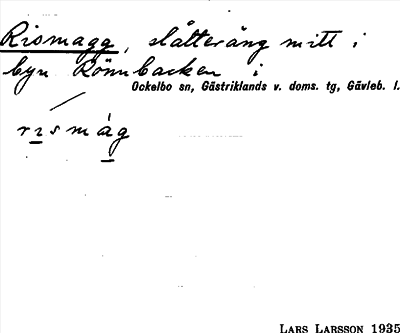 Rismagg, slåtteräng mitt i
byn Rönnbacken i
Ockelbo sn, Gästriklands v. doms. tg, Gävleb. l.
rısmág
LARS LARSSON 1935